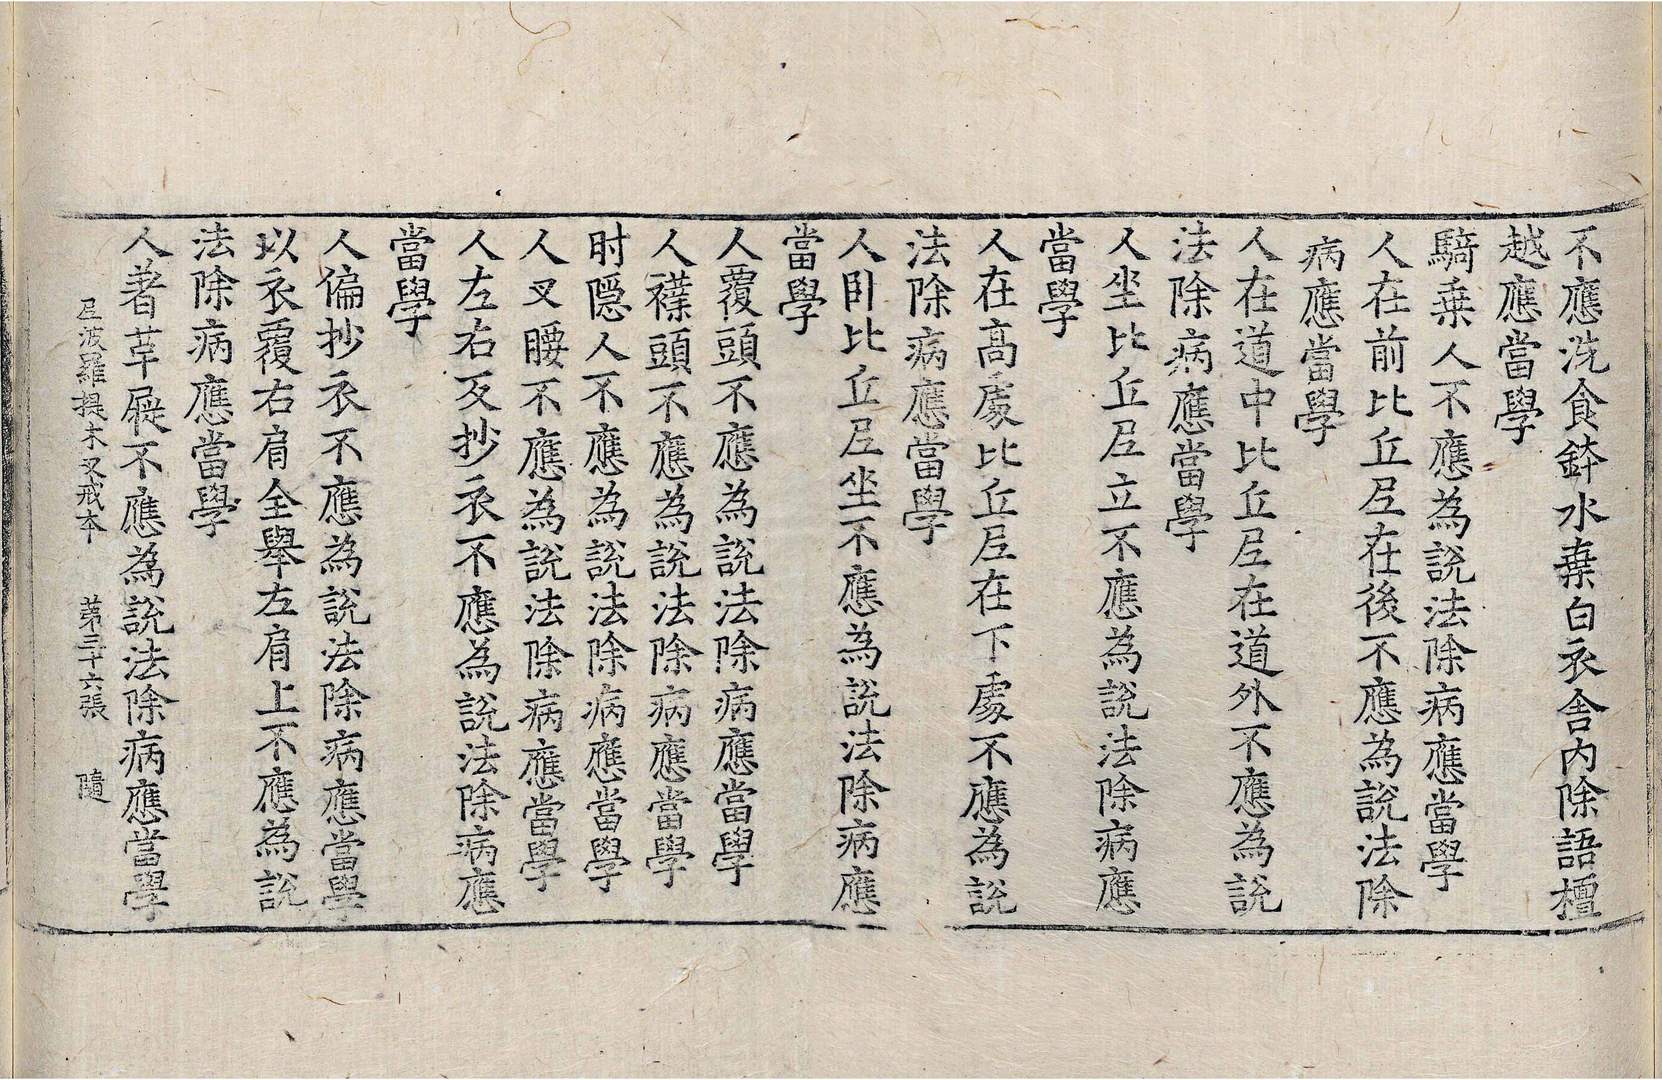 不應洗食鉢水棄白衣舍內除語檀
越應當學
騎乗人不應為說法除病應當學
人在前比丘𡰱在後不應為說法除
病應當學
人在道中比丘𡰱在道外不應為說
法除病應當學
人坐比丘𡰱立不應為說法除病應
當學
人在髙處比丘𡰱在下處不應為說
法除病應當學
人卧比丘𡰱坐不應為說法除病應
當學
人覆頭不應為說法除病應當學
人襆頭不應為說法除病應當學
肘隱人不應為說法除病應當學
人叉腰不應為說法除病應當學
人左右反抄衣不應為說法除病應
當學
人偏抄衣不應為說法除病應當學
以衣覆右肩全舉左肩上不應為說
法除病應當學
人著草屣不應為說法除病應當學
𡰱波羅提木叉戒本 第三十六張 隨